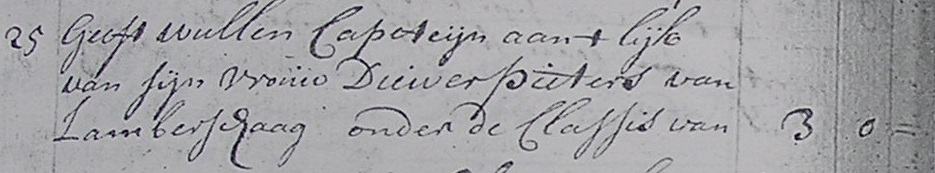 25 Geeft wullem Capoteijn aant lijk
van sijn vrouw Diewer pieters van
Lamberschaag onder de Classis van 3 0 =